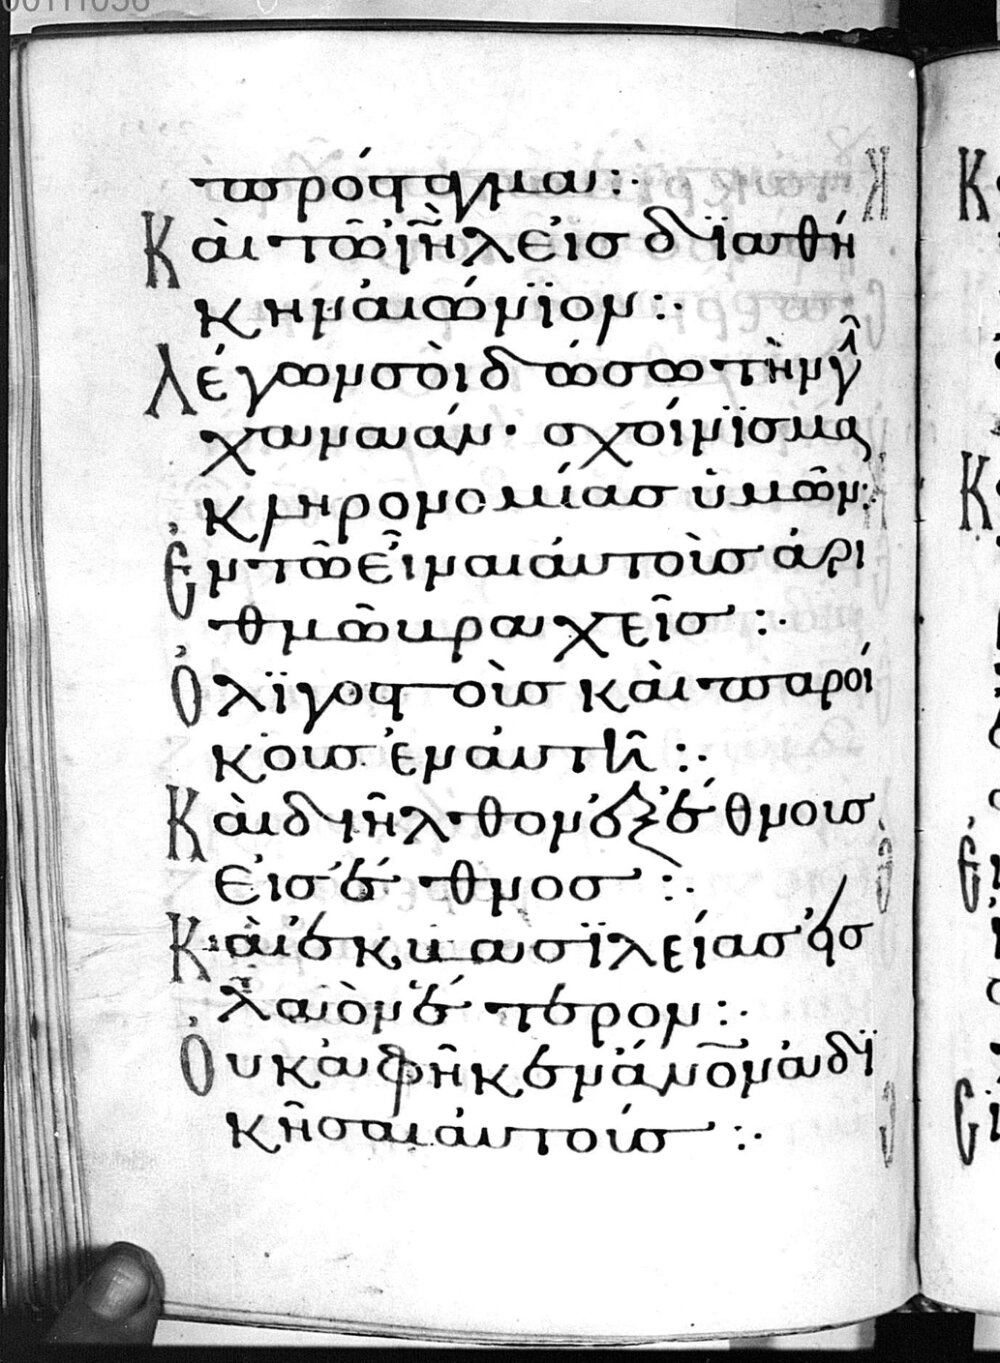 πρόσταγμα:·
Καὶ τῶ ιη̅λ εἰσ δϊαθή
κην αἰώνϊον:·
Λέγων σοὶ δώσω τὴν γῆ
χαναάν· σχοίνϊσμα
κληρονομίασ ὑμῶν:·
Ἐν τῶ εἶναι αὐτοὺσ ἀρι
θμῶ βραχεῖσ:·
Ὀλϊγοστοὺσ καὶ παροί
κουσ ἐν αὐτῆ:·
Καὶ διῆλθον ἐξ ἔθνουσ
εἰσ ἔθνοσ:·
Καὶ ἐκ βασϊλείασ εἰσ
λαὸν ἕτερον:·
Οὐκ ἀφῆκεν ἄνο̅ν ἀδϊ
κῆσαι αὐτούσ:·